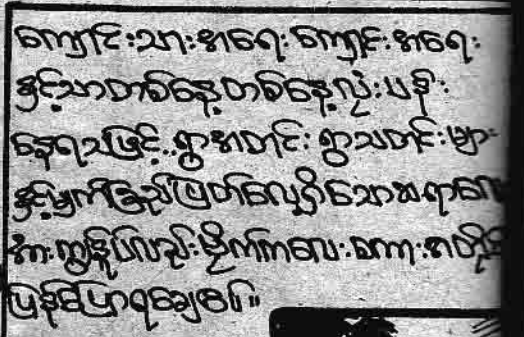 ကျောင်းသားအရေး ကျောင်းအရေး
နှင့်သာတစ်နေ့တစ်နေ့လုံးပန်း
နေရသဖြင့် ရွာအတင်း ရွာသတင်းများ
နှင့်မျက်ခြည်ပြတ်လေ့ရှိသောဆရာလေး
အားကျွန်ုပ်လည်းမိုက်ကလေးကောအတိုင်း
ပြန်ပြောရချေပေါ့။